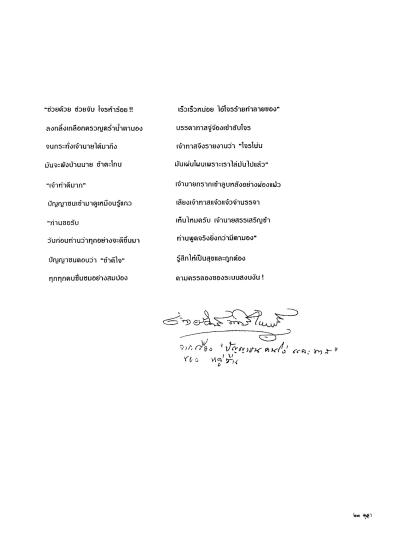 "ช่วยด้วย ช่วยจับ โจรห้าร้อย !!
เร็วเร็วหน่อย ได้โจรร้ายทำลายของ"
ลงกลิ้งเกลือกตรวญคร่ำน้ำตานอง
บรรดาทาสจู่จ้องเข้าซับโจร
จนกระทั่งเจ้านายได้มาถึง
เจ้าทาสจึงรายงานว่า "โจรโผน
มันจะพังบ้านนาย ข้าตะโกน
มันเผ่นโผนเพราะเราไล่มันไปแล้ว"
"เจ้าทำดีมาก"
เจ้านายกรากเข้าลูบหลังอย่างผ่องแผ้ว
ปัญญาชนเข้ามาดูเหมือนรู้แกว
เสียงเจ้าทาสแจ้วแจ้วจำนรรจา
"ท่านขอรับ
เห็นไหมครับ เจ้านายสรรเสริญข้า
วันก่อนท่านว่าทุกอย่างจะดีขึ้นมา
ท่านพูดจริงยิ่งกว่ามีตามอง"
ปัญญาชนตอบว่า "ข้าดีใจ"
รู้สึกให้เป็นสุขและถูกต้อง
ทุกทุกคนชื่นชมอย่างสมปอง
ตามครรลองของระบบสงบงัน !
จากเรื่อง "ปัญญาชน คนโง่ และทาส"
ของ หลู่ซิ่น
๒๓ ตุลา